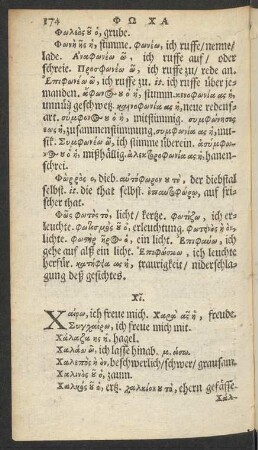 174 ΦΩ ΧΑ
Φωλεὸς ȣ͂ ὁ, grube.
Φωνὴ ῆς ἡ, stimme. φωνέω, ich ruffe/nenne/
lade. Ἀναφωνέω ῶ, ich ruffe auf/ oder
schreie. Προσφωνέω ῶ, ich ruffe zu/ rede an.
Ἐπιφωνέω ῶ, ich ruffe zu. it. ich ruffe über je-
manden. stumm. κενοφωνία ας ἡ
unnütz geschwetz. καινοφωνία ας ἡ, neue redens
art. ȣ ὁ ἡ, mitstimmig. συμφώνησις
εως ἡ, zusammenstimmung. συμφωνία ας ἡ, mu-
sik. Συμφωνέω ῶ, ich stimme überein. ἀσύμφω-
ν ȣ ὁ ἡ, mißhällig. ἀλεκτοροφωνία ας ἡ, hanen-
schrei.
Φώρ ὸς ὁ, dieb. αὐτόφωρον ȣ τὸ, der diebstal
selbst. it. die that selbst. ἐπαυτοφώρῳ, auf fri-
scher that.
Φῶς φωτὸς τὸ, licht/ kertze. φωτίζω, ich er-
leuchte. φωτισμὸς ȣ͂ ὁ, erleuchtung. φωτεινὸς ὴ ὸν,
lichte. φωστὴρ ῆρ ὁ, ein licht. Ἐπιφαύω, ich
gehe auf alß ein licht. Ἐπιφώσκω, ich leuchte
herfür. κατήφεια ας ἡ, traurigkeit/ niderschla-
gung deß gesichtes.
XI.
Χαίρω, ich freue mich. Χαρὰ ᾶς ἡ, freude.
Συγχαίρω, ich freue mich mit.
Χάλαζα ης ἡ, hagel.
Χαλάω ῶ, ich lasse hinab. m. άσω.
Χαλεπὸς ὴ ὸν, beschwerlich/schwer/ grausam.
Χαλινὸς ȣ͂ ὁ, zaum.
Χαλκὸς ȣ͂ ὁ, ertz. χαλκίον ȣ τὸ, ehern gefässe.
Χάλ-